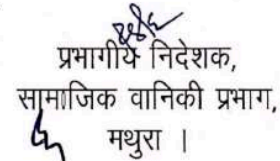 प्रभागीय निदेशक,
सामाजिक वानिकी प्रभाग,
मथुरा ।